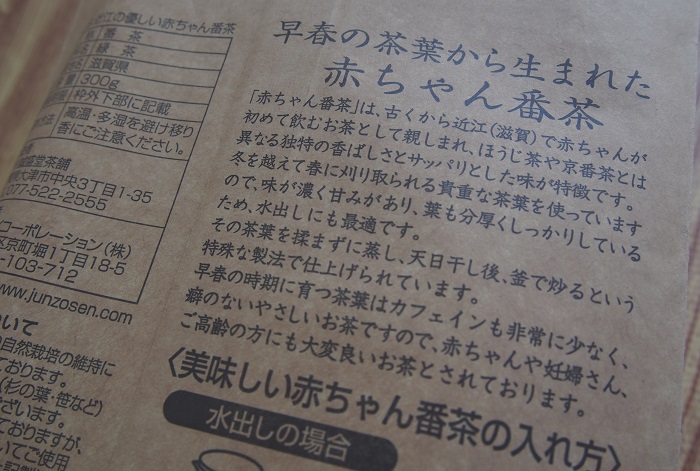 江の優しい赤ちゃん番茶
番　茶
緑　茶
滋賀県
300g
枠外下部に記載
高温・多湿を避け移り
香にご注意ください。
堂茶舗
大津市中央3丁目1-35
077-522-2555
コーポレーション(株)
区京町堀1丁目18-5
-103-712
www.junzosen.com
いて
自然栽培の維持に
ております。
(杉の葉・笹など)
ざいます。
ておりますが、
いてご使用
早春の茶葉から生まれた
赤ちゃん番茶
「赤ちゃん番茶」は、古くから近江(滋賀)で赤ちゃんが
初めて飲むお茶として親しまれ、ほうじ茶や京番茶とは
異なる独特の香ばしさとサッパリとした味が特徴です。
冬を越えて春に刈り取られる貴重な茶葉を使っています
ので、味が濃く甘みがあり、葉も分厚くしっかりしている
ため、水出しにも最適です。
その茶葉を揉まずに蒸し、天日干し後、釜で炒るという
特殊な製法で仕上げられています。
早春の時期に育つ茶葉はカフェインも非常に少なく、
癖のないやさしいお茶ですので、赤ちゃんや妊婦さん、
ご高齢の方にも大変良いお茶とされております。
〈美味しい赤ちゃん番茶の入れ方〉
水出しの場合